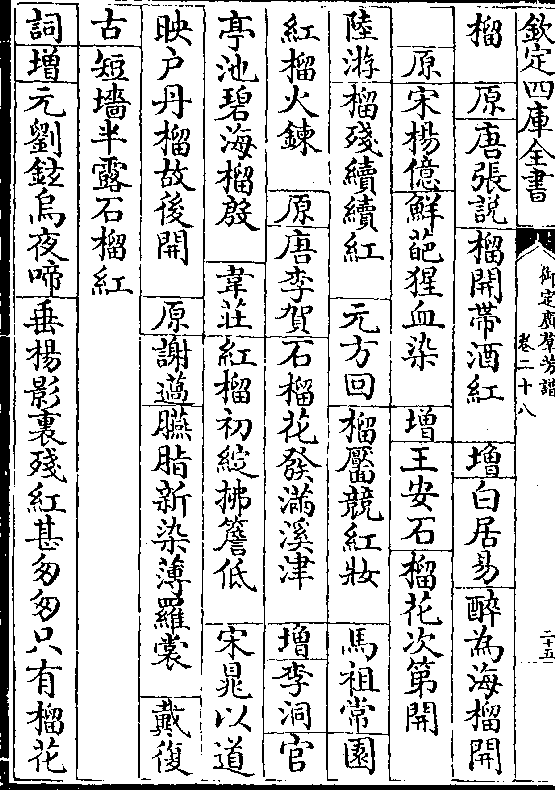 欽定四庫全書
御定廣羣芳譜
卷二十八
二十五
榴 原唐張説榴開帶酒紅 增白居易醉為海榴開
原宋楊億鮮葩猩血染 增王安石榴花次第開
陸游榴殘續續紅 元方回榴靨競紅妝 馬祖常園
紅榴火鍊 原唐李賀石榴花發滿溪津 增李洞官
亭池碧海榴殷 韋莊紅榴初綻拂簷低 宋晁以道
映户丹榴故後開 原謝薖臙脂新染薄羅裳 戴復
古短墻半露石榴紅
詞增元劉鉉烏夜啼垂楊影裏殘紅甚匆匆只有榴花